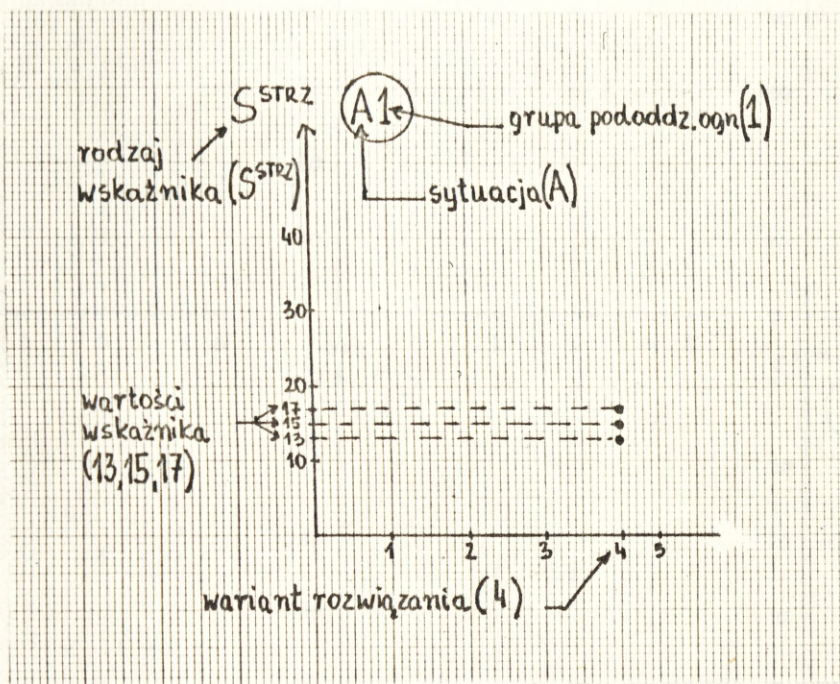 S^STRZ A1
grupa pododdz.ogn(1)
rodzaj
wskaźnika (S^STRZ)
sytuacja(A)
40
30
20
17
15
13
10
wartości
wskaźnika
(13,15,17)
1 2 3 4 5
wariant rozwiązania (4)